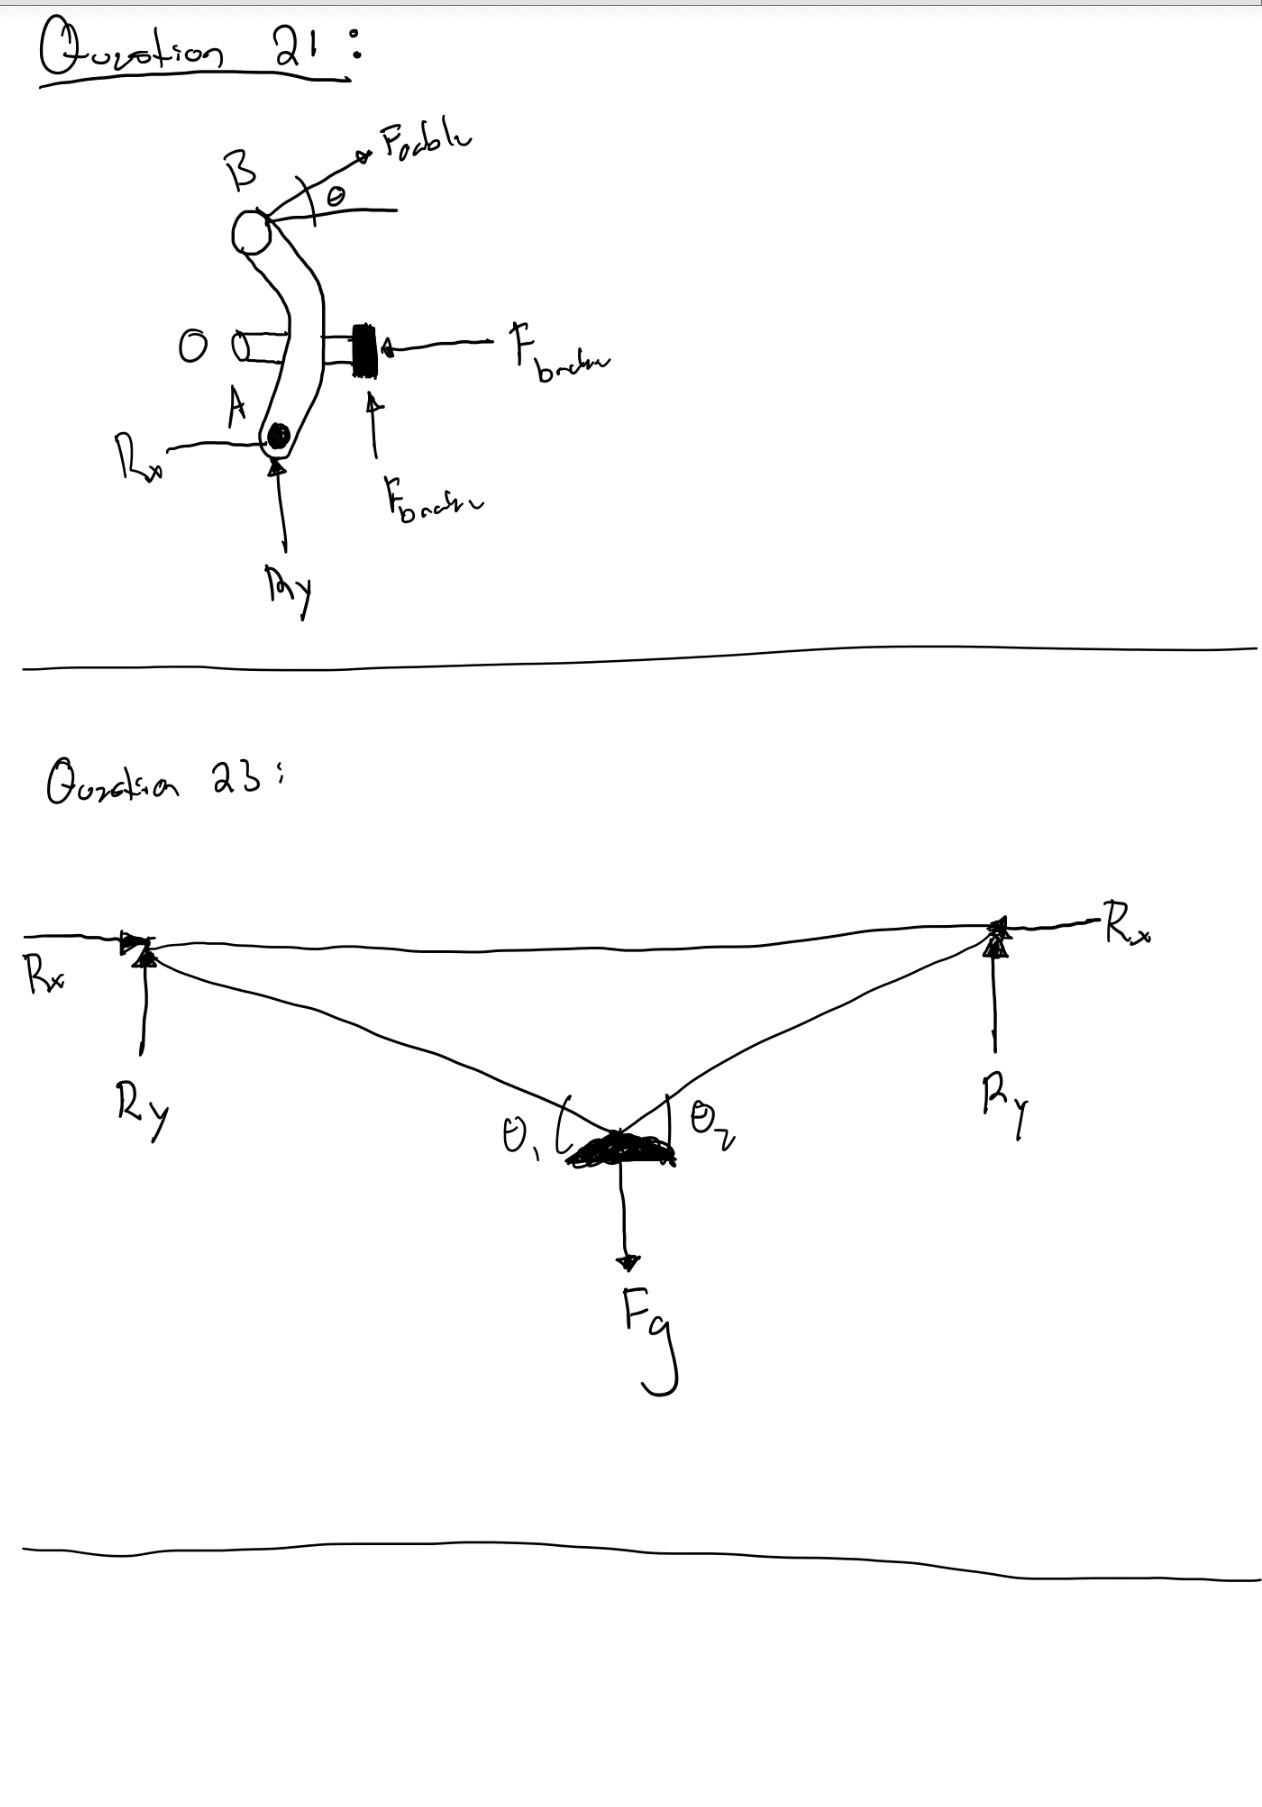 Question 21:
B
Fcable
θ
O
Fbrake
A
Rx
Fbrake
Ry
Question 23:
Rx
Rx
Ry
Ry
θ1
θ2
Fg